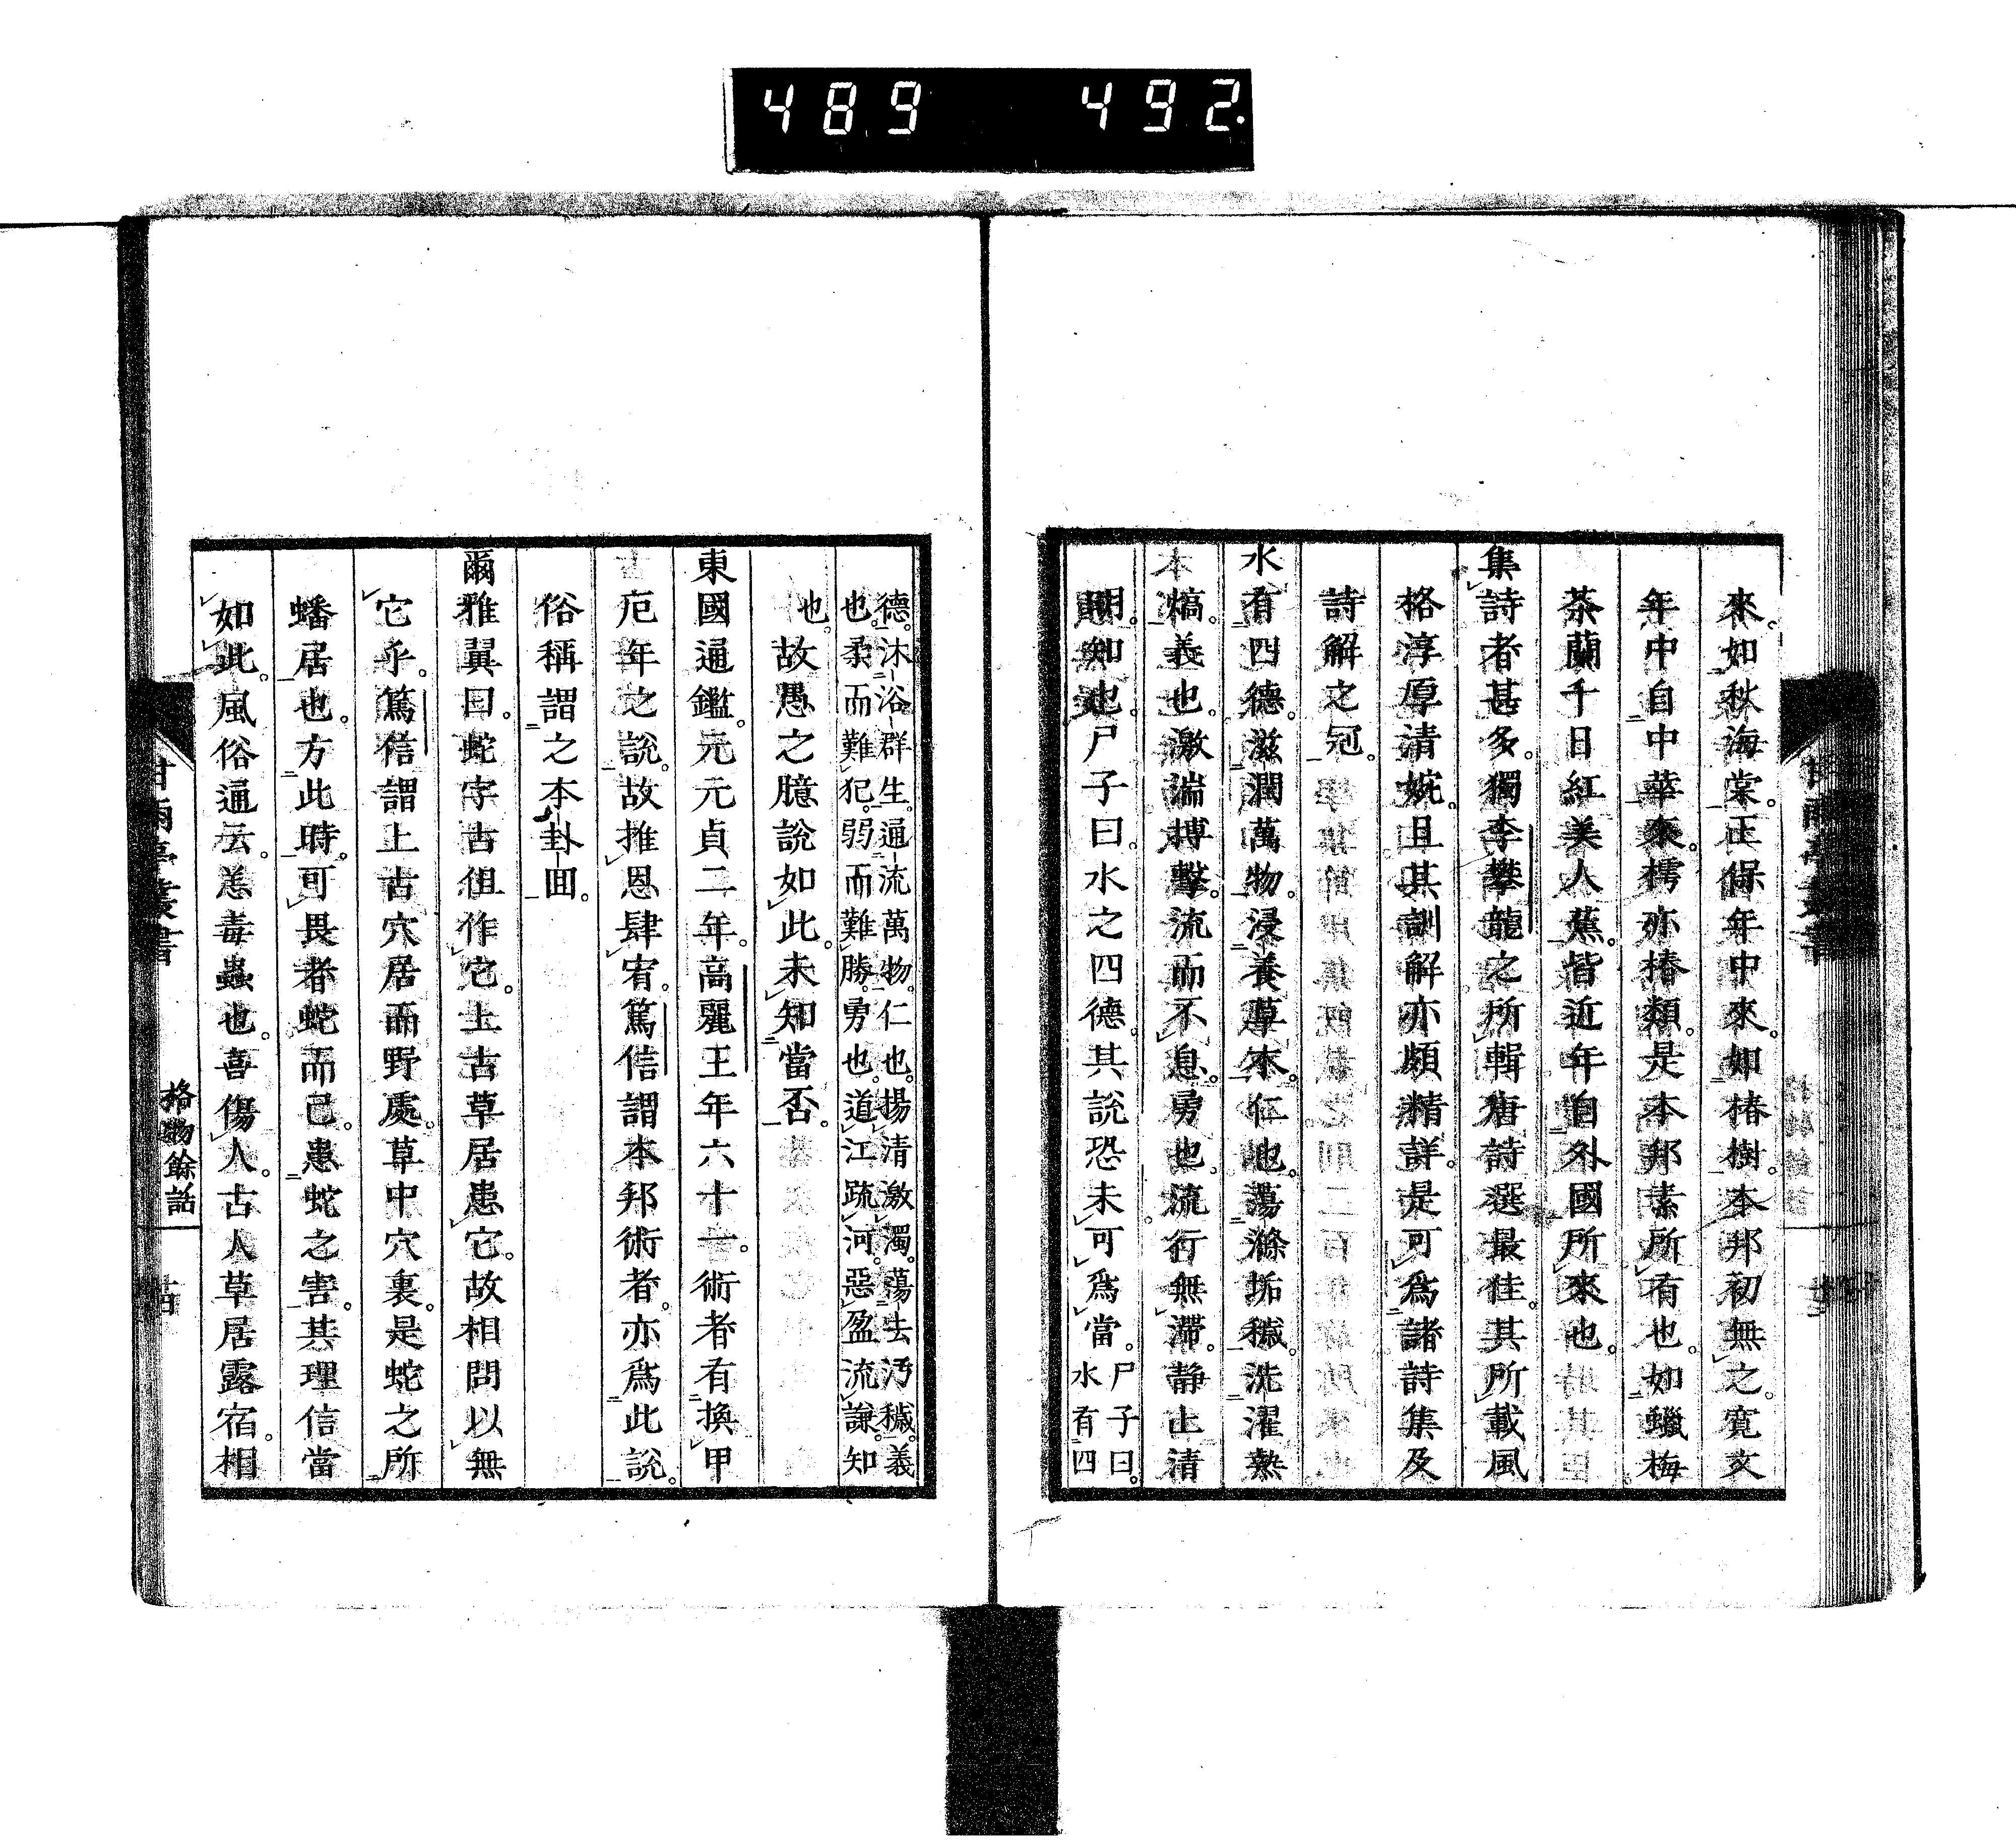 489 492.
來。如秋海棠。正保年中來。如椿樹。本邦初無之。寛文
年中自中華來。樗亦椿類。是本邦素所有也。如蠟梅
茶蘭千日紅美人蕉。皆近年自外國所來也。
集詩者甚多。獨李攀龍之所輯唐詩選最佳。其所載風
格淳厚清婉。且其訓解亦頗精詳。是可爲諸詩集及
詩解之冠。
水有四德。滋潤萬物。浸養草木。仁也。蕩滌垢穢。洗濯熱
熇。義也。激湍搏擊。流而不息。勇也。流行無滯。静止清
明。知也。尸子曰。水之四德。其說恐未可爲當。尸子曰。
水有四
德。沐浴群生。通流萬物。仁也。揚清激濁。蕩去汚穢。義
也。柔而難犯。弱而難勝。勇也。道江疏河。惡盈流謙。知
也。故愚之臆說如此。未知當否。
東國通鑑。元元貞二年。高麗王年六十一。術者有換甲
厄年之說。故推恩肆宥。篤信謂本邦術者。亦爲此說。
俗稱謂之本卦囬。
爾雅翼曰。蛇字古但作它。上古草居患它。故相問以無
它乎。篤信謂上古穴居而野處。草中穴裏。是蛇之所
蟠居也。方此時。可畏者蛇而已。患蛇之害。其理信當
如此。風俗通云。恙毒蟲也。喜傷人。古人草居露宿。相
格物餘話